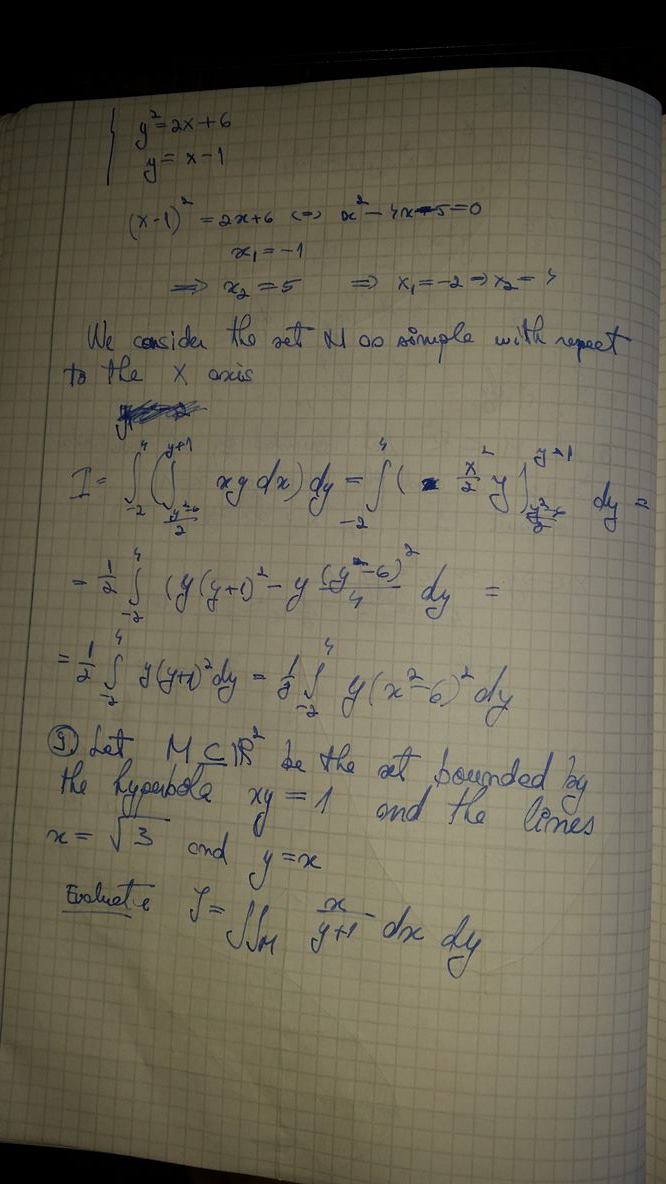 y² = 2x+6
y = x-1
(x-1)² = 2x+6 ⇔ x² - 4x - 5 = 0
x₁ = -1
⇒ x₂ = 5 ⇒ x₁ = -2 ⇒ x₂ = 4
We consider the set M as simple with repect
to the X axis
I = ∫₋₂⁴ ( ∫_{(y²-6)/2}^{y+1} xy dx) dy = ∫₋₂⁴ ( x²/2 y |_{(y²-6)/2}^{y+1} dy =
= 1/2 ∫₋₂⁴ (y(y+1)² - y (y²-6)²/4 dy =
= 1/2 ∫₋₂⁴ y(y+1)² dy = 1/8 ∫₋₂⁴ y(x²-6)² dy
9. Let M ⊆ ℝ² be the set bounded by
the hyperbola xy = 1 and the lines
x = √3 and y = x
Evaluate J = ∬_M x/(y+1) dx dy